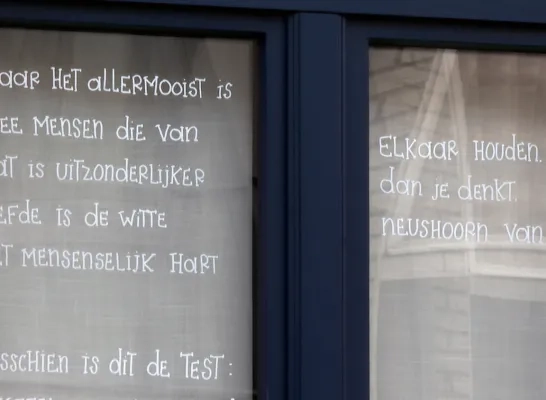 aar HET aLLERMOOiST is
EE MENSEN die VaN ELKaar HOUDEN.
aT is UiTZONDERLijKER daN jE dENKT.
EFdE is dE WiTTE NEUSHOORN VaN
T MENSENSELijK HarT
sschiEN is diT dE TEST: